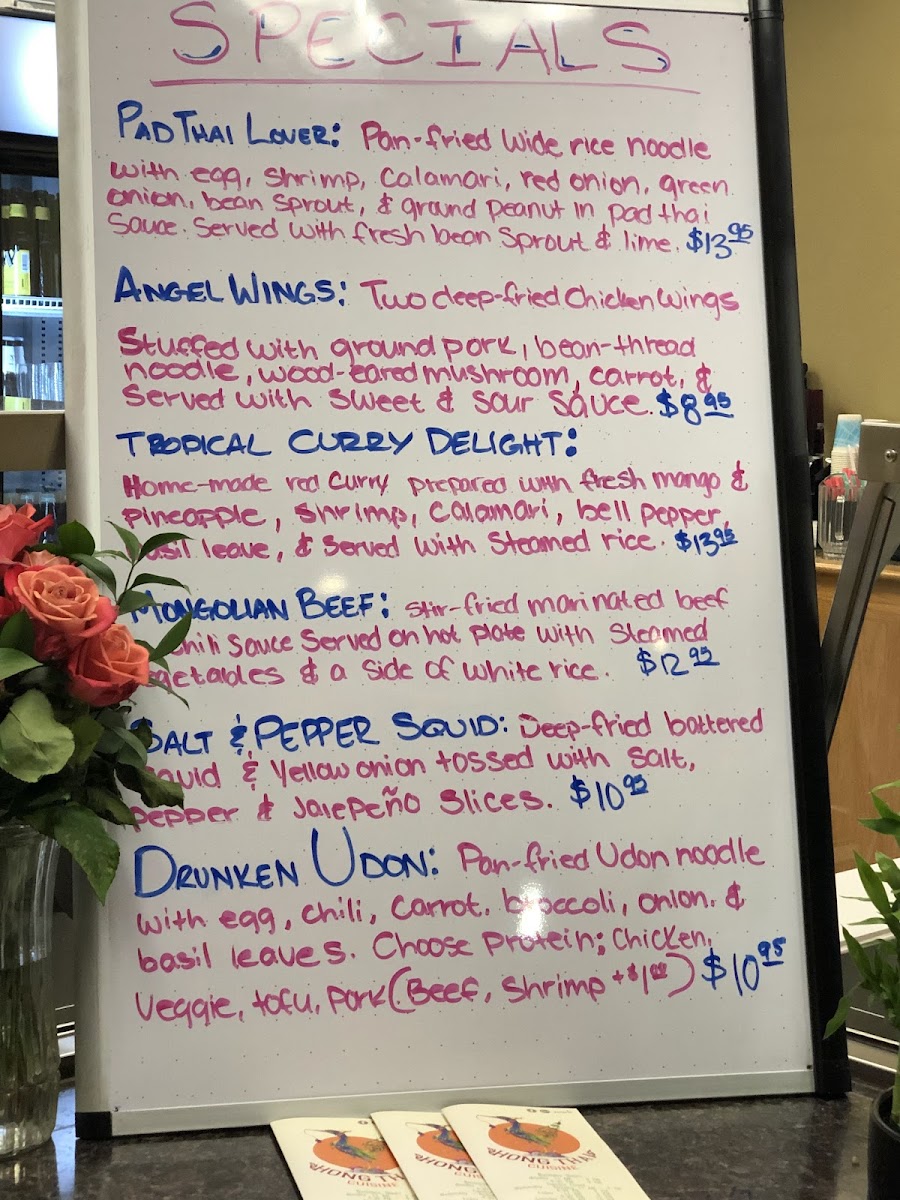 SPECIALS
PAD THAI LOVER: Pan-fried wide rice noodle
with egg, shrimp, calamari, red onion, green
onion, bean sprout, & ground peanut in pad thai
sauce. Served with fresh bean sprout & lime. $13.95
ANGEL WINGS: Two deep-fried chicken wings
stuffed with ground pork, bean-thread
noodle, wood-eared mushroom, carrot, &
served with sweet & sour sauce. $8.95
TROPICAL CURRY DELIGHT:
Home-made red curry prepared with fresh mango &
pineapple, shrimp, calamari, bell pepper,
basil leave, & served with steamed rice. $13.95
MONGOLIAN BEEF: stir-fried marinated beef
chili sauce served on hot plate with steamed
vegetables & a side of white rice. $12.95
SALT & PEPPER SQUID: Deep-fried battered
squid & yellow onion tossed with salt,
pepper & jalepeño slices. $10.95
DRUNKEN UDON: Pan-fried Udon noodle
with egg, chili, carrot, broccoli, onion, &
basil leaves. Choose protein; chicken,
veggie, tofu, pork (Beef, shrimp + $1.00) $10.95
CUISINE